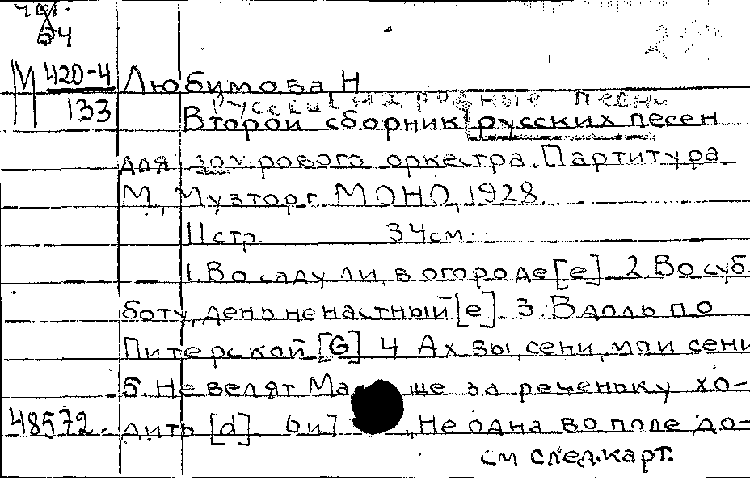 54
М 420-4 Любимова Н
133 Русские народные песни
Второй сборник русских песен
для дохрового оркестра. Партитура
М., Музторг МОНО, 1928.
11 стр. 34 см.
1. Во саду ли, в огороде [e] 2. Во суб-
боту, день ненастный [e] 3. Вдоль по
Питерской [G] 4 Ах вы, сени, мои сени
5. Не велят Ма ше за реченьку хо-
48572. дить [d] 6. Не одна во поле до-
см след.карт.